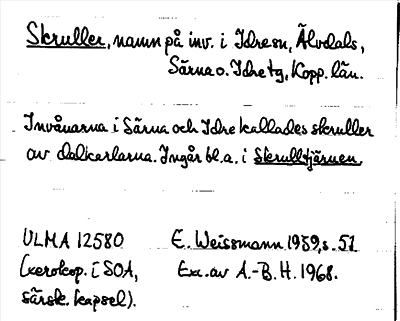 Skruller, namn på inv. i Idresn, Älvdals,
Särna o. Idre tg, Kopp. län.
Invånarna i Särna och Idre kallades skruller
av dalkarlarna. Ingår bl.a. i Skrulltjärnen.
ULMA 12580 E. Weissmann 1959, s. 51
(xerokop. i SOA, Exc. av A.-B. H. 1968.
särsk. kapsel).